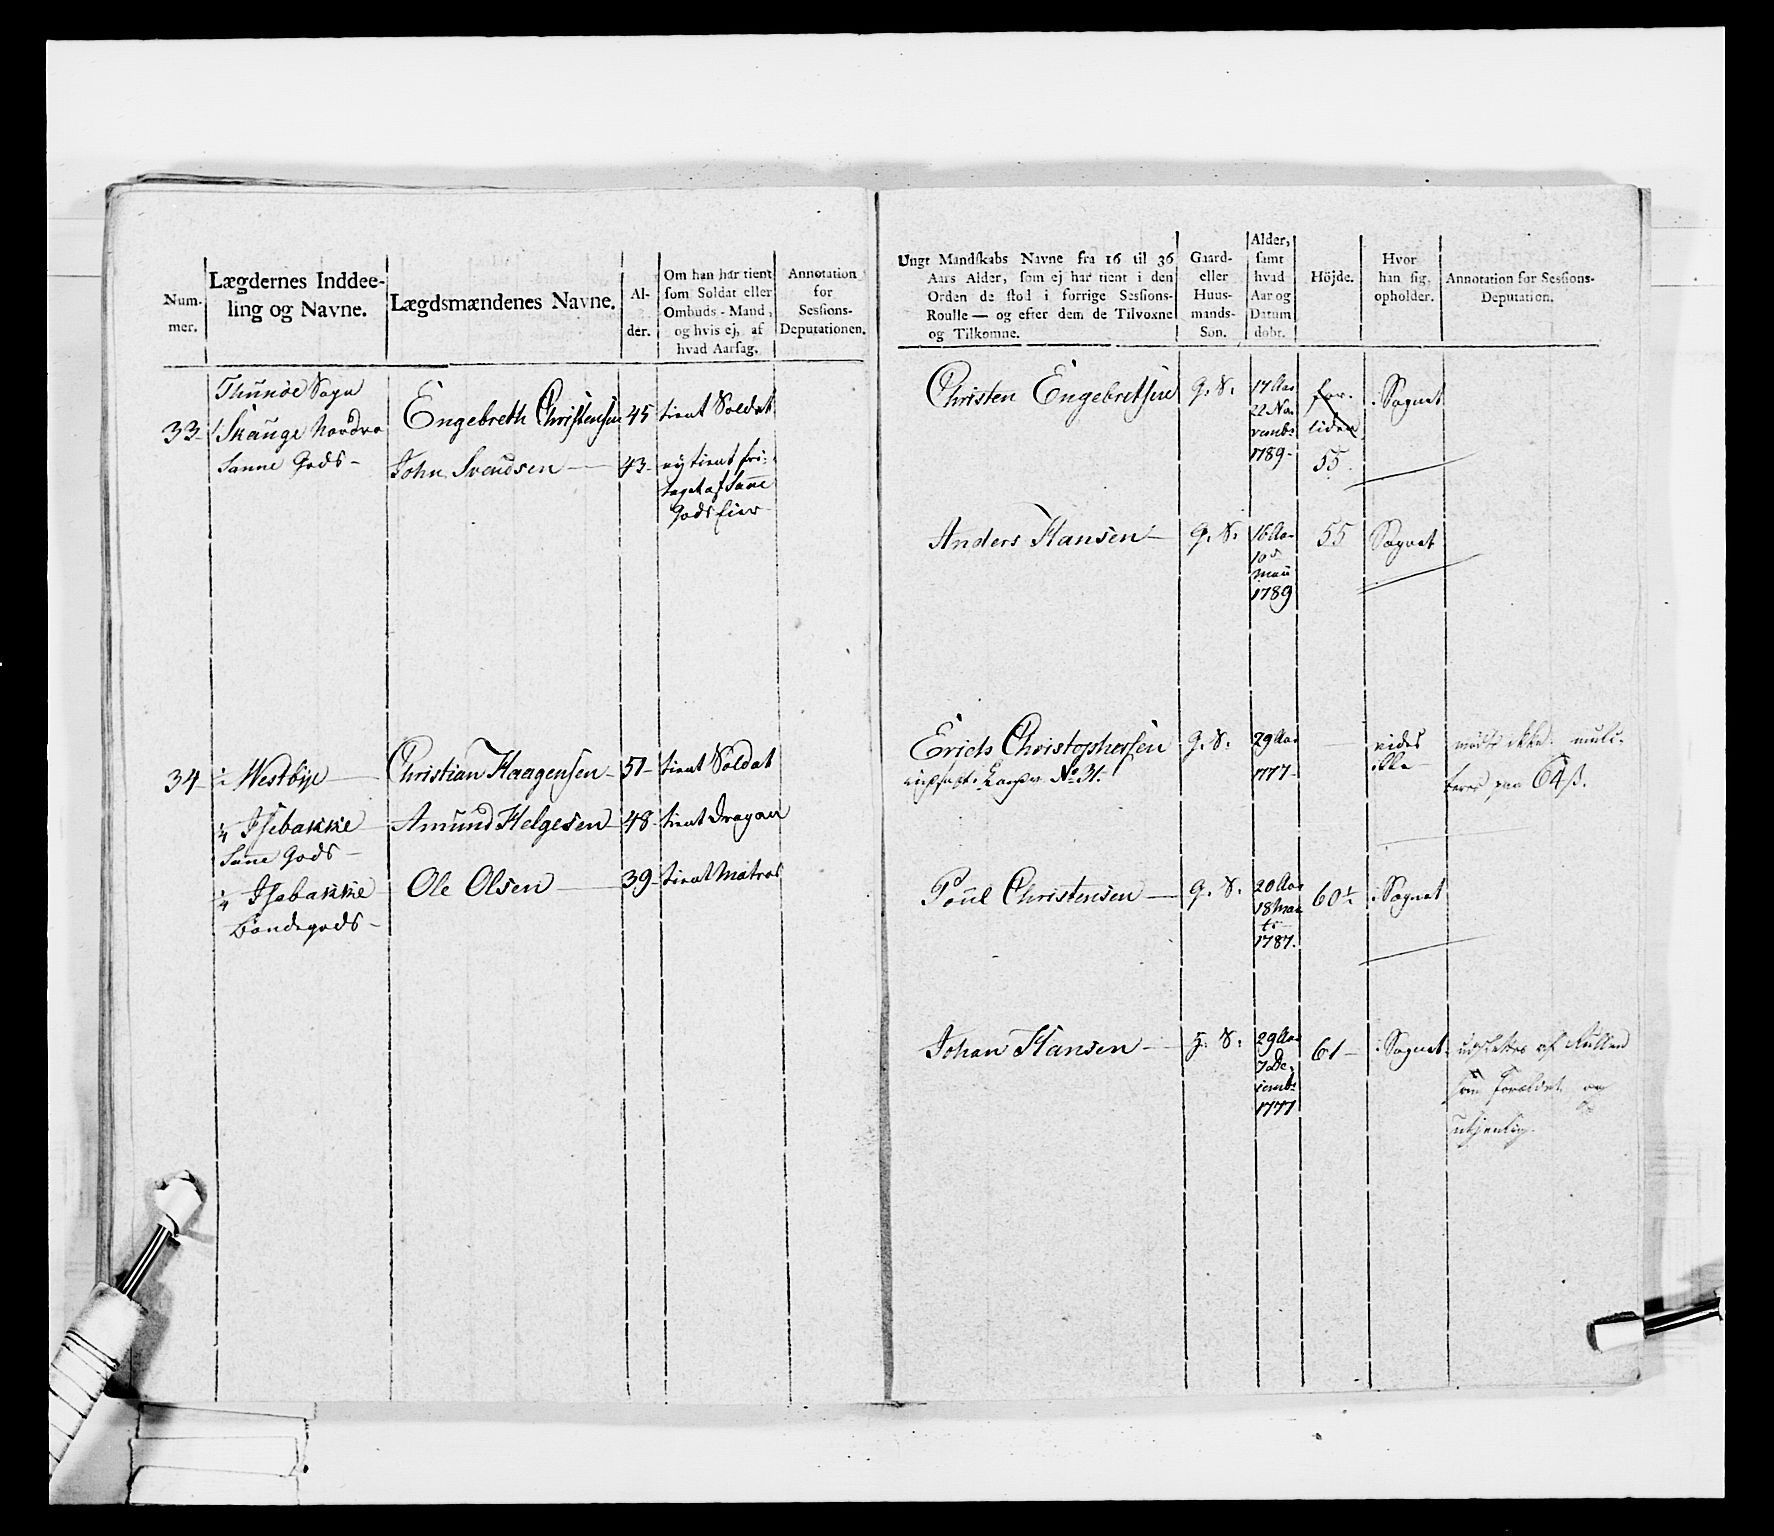 Num-
mer.
Lægdernes Inddee-
ling og Navne.
Lægdsmændenes Navne.
Al-
der.
Om han har tient
som Soldat eller
Ombuds-Mand,
og hvis ej, af
hvad Aarsag.
Annotation
for
Sessions-
Deputationen.
Thunøe Sogn
33 1 Skauge Nordre
Sanne Gods
Engebreth Christensen 45 tient Soldat
John Svendsen 43 ey tient fri-
taget af Sanne
Gods Eier
34 Westbye Christian Haagensen 51 tient Soldat
1/4 Isebakke Amund Helgesen 48 tient Dragon
Sanne Gods
1/4 Isebakke Ole Olsen 39 tient Matros
Bondegods
Ungt Mandskabs Navne fra 16 til 36
Aars Alder, som ej har tient i den
Orden de stod i forrige Sessions-
Roulle — og efter dem de Tilvoxne
og Tilkomne.
Gaard-
eller
Huus-
mands-
Søn.
Alder,
samt
hvad
Aar og
Datum
døbt.
Höjde.
Hvor
han sig
opholder.
Annotation for Sessions-
Deputation.
Christen Engebretsen G. S. 17 Aar for- i Sognet
22 No-
vembr liden
1789 55
Anders Hansen G. S. 16 Aar 55 Sognet
10
1789
Erich Christophersen G. S. 29 Aar vides mødt ikke. mulc-
No 31. 1777 ikke teres paa 64 ß.
Poul Christensen G. S. 20 Aar 60 1/2 i Sognet
18 Mar-
ts
1787.
Johan Hansen H. S. 29 Aar 61 i Sognet udslettes af Rullen
7 De-
cembr som forældet og
1777
utjenlig.